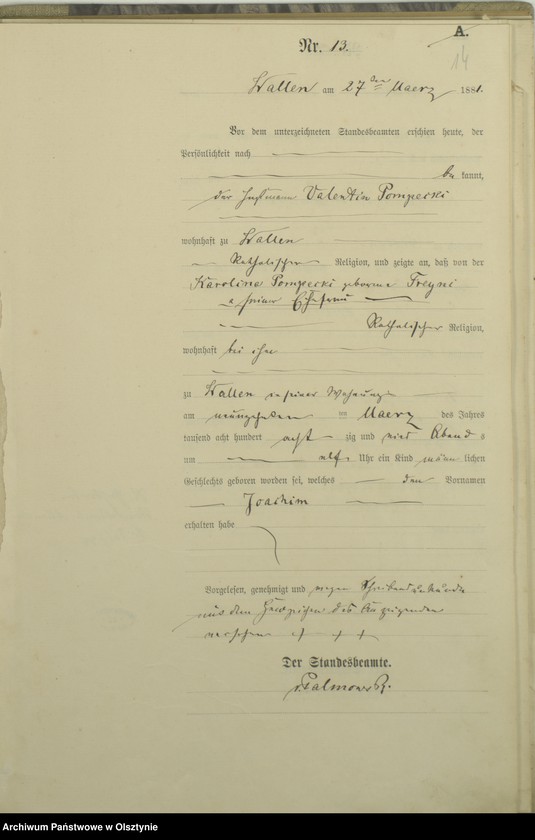 A.
14
Nr. 13.
Wallen am 27ten Maerz 1881.
Vor dem unterzeichneten Standesbeamten erschien heute, der
Persönlichkeit nach
be kannt,
der Valentin Pompecki
wohnhaft zu Wallen
Katholischer Religion, und zeigte an, daß von der
Karolina Pompecki geborene
seiner Ehefrau
Katholischer Religion,
wohnhaft bei ihm
zu Wallen in seiner Wohnung
am neunzehnten Maerz des Jahres
tausend acht hundert acht zig und Abend s
um elf Uhr ein Kind männ lichen
Geschlechts geboren worden sei, welches den Vornamen
Joachim
erhalten habe
Vorgelesen, genehmigt und wegen
mit dem Handzeichen des Anzeigenden
versehen + + +
Der Standesbeamte.
Archiwum Państwowe w Olsztynie